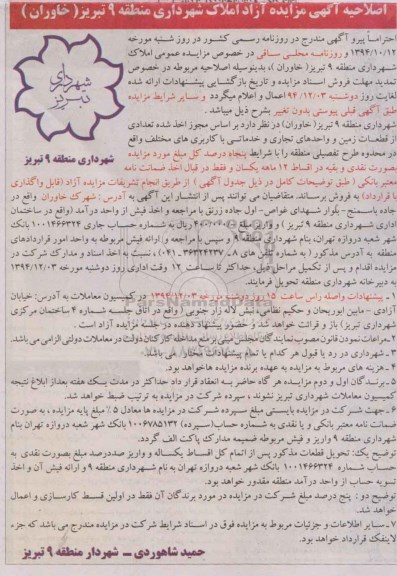 اصلاحیه آگهی مزایده آزاد املاک شهرداری منطقه ۹ تبریز( خاوران )
احتراماً پیرو آگهی مندرج در روزنامه رسمی کشور در روز شنبه مورخه
۱۳۹۴/۱۰/۱۲ و روزنامه محلی ساقی در خصوص مزایده عمومی املاک
شهرداری منطقه ۹ تبریز( خاوران )، بدینوسیله اصلاحیه مربوطه در خصوص
تمدید مهلت فروش اسناد مزایده و تاریخ بازگشایی پیشنهادات ارائه شده
لغایت روز دوشنبه ۹۴/۱۲/۰۳ اعمال و اعلام میگردد و سایر شرایط مزایده
طبق آگهی قبلی پیوستی بدون تغییر بشرح ذیل میباشد .
شهرداری تبریز
شهرداری منطقه ۹ تبریز
شهرداری منطقه ۹ تبریز( خاوران) در نظر دارد بر اساس مجوز اخذ شده تعدادی
از قطعات زمین و واحدهای تجاری و خدماتی با کاربری های مختلف واقع
در محدوده طرح تفصیلی منطقه را با شرایط پنجاه درصد کل مبلغ مورد مزایده
بصورت نقدی و بقیه در اقساط ۱۲ ماهه یکسان و فقط در قبال اخذ ضمانت نامه
معتبر بانکی ( طبق توضیحات کامل در ذیل جدول آگهی ) از طریق انجام تشریفات مزایده آزاد (قابل واگذاری
با قرارداد) به فروش برساند. متقاضیان می توانند پس از انتشار این آگهی به آدرس : شهرک خاوران واقع در
جاده باسمنج- بلوار شهدای غواص- اول جاده زرنق با مراجعه و اخذ فیش از واحد درآمد (واقع در ساختمان
اداری شهرداری منطقه ۹ تبریز ) و واریز مبلغ ریال به شماره حساب جاری ۱۰۰۱۴۶۶۳۲۴ بانک
شهر شعبه دروازه تهران، بنام شهرداری منطقه ۹ و سپس با مراجعه و ارائه فیش مربوطه به واحد امور قراردادهای
منطقه به آدرس مذکور ( به شماره تلفن های ۸-۳۶۳۲۴۲۳۷ ـ ۰۴۱) ، نسبت به اخذ اسناد و مدارک شرکت در
مزایده اقدام و پس از تکمیل مراحل ذیل، حداکثر تا ساعت ۱۲ وقت اداری روز دوشنبه مورخه ۱۳۹۴/۱۲/۰۳
به دبیرخانه شهرداری منطقه تحویل فرمایند.
۱- پیشنهادات واصله راس ساعت ۱۵ روز دوشنبه مورخه ۱۳۹۴/۱۲/۰۳ در کمیسیون معاملات به آدرس: خیابان
آزادی – مابین ابوریحان و حکیم نظامی، نبش لاله زار جنوبی ( واقع در اتاق جلسه شماره ۴ ساختمان مرکزی
شهرداری تبریز) باز و قرائت خواهد شد و حضور پیشنهاد دهنده در جلسه مزایده آزاد است .
۲-مراعات نمودن قانون مصوب نمایندگان مجلس مبنی بر منع مداخله کارکنان دولت در معاملات دولتی الزامی می باشد.
۳- شهرداری در رد یا قبول هر کدام یا تمام پیشنهادات مختار می باشد.
۴- هزینه های مربوط به مزایده به عهده برنده مزایده هاخواهد بود.
۵- برندگان اول و دوم مزایده هر گاه حاضر به انعقاد قرار داد حداکثر در مدت یک هفته بعداز ابلاغ نتیجه
کمیسیون معاملات شهرداری تبریز نشوند ، سپرده شرکت در مزایده به ترتیب ضبط خواهد شد.
۶- جهت شرکت در مزایده بایستی مبلغ سپرده شرکت در مزایده ها معادل ۵ ٪ مبلغ پایه مزایده ، به صورت
ضمانت نامه معتبر بانکی و یا نقدی به شماره حساب(سپرده) ۱۰۰۶۷۸۵۱۳۲ بانک شهر شعبه دروازه تهران بنام
شهرداری منطقه ۹ واریز و فیش مربوطه ضمیمه مدارک پاکت الف گردد.
توضیح یک: تحویل قطعات مذکور پس از اتمام کل اقساط یکساله و واریز صددرصد مبلغ بصورت نقدی به
حساب شماره ۱۰۰۱۴۶۶۳۲۴ بانک شهر شعبه دروازه تهران به نام شهرداری منطقه ۹ و ارائه فیش آن و اخذ
تسویه حساب از واحد درآمد منطقه مقدور خواهد بود.
توضیح دو : پنج درصد مبلغ شرکت در مزایده در مورد برندگان آن فقط در اولین قسط کارسازی و اعمال
خواهد شد.
۷- سایر اطلاعات و جزئیات مربوط به مزایده فوق در اسناد شرایط شرکت در مزایده مندرج می باشد که جزء
لاینفک قرارداد خواهد بود.
حمید شاهوردی ــ شهردار منطقه ۹ تبریز